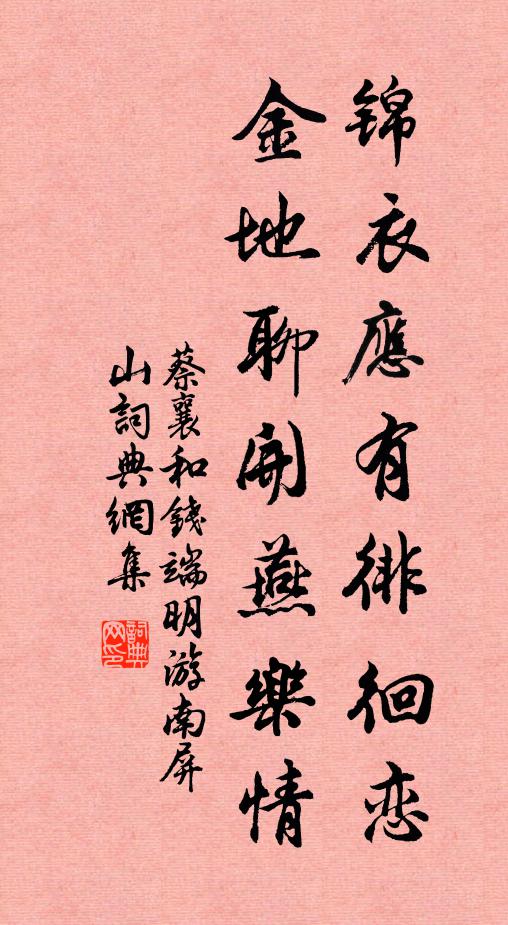 锦衣應有徘徊恋
金地聊開燕樂情
蔡襄和錢端明游南屏
山詞典網集
詞典網印